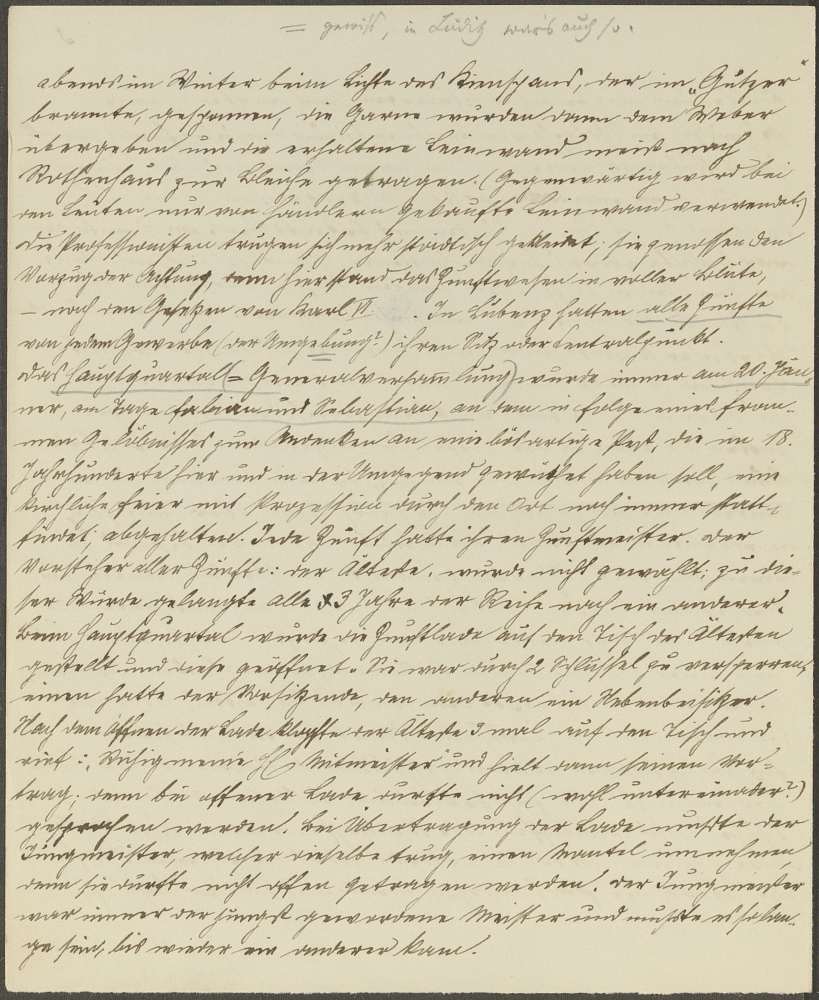 = gewiß, in Luditz war's auch so.
abends im Winter beim Lichte des Kienspans, der im „Gützer“
brannte, gesponnen, die Garne wurden dann dem Weber
übergeben und die erhaltene Leinwand meist nach
Rothenhaus zur Bleiche getragen. (Gegenwärtig wird bei
den Leuten nur von Händlern gekaufte Leinwand verwendet.)
Die Professionisten trugen sich mehr städtisch gekleidet; sie genossen den
Vorzug der Achtung, denn hier stand das Zunftwesen in voller Blüte,
– nach den Gesetzen von Karl VI. In Lubenz hatten alle Zünfte
von jedem Gewerbe (der Umgebung?) ihren Sitz oder Centralpunkt.
Das Hauptquartal (= Generalversammlung) wurde immer am 20. Jän-
ner, am Tage Fabian und Sebastian, an dem in folge eines from-
men Gelöbnisses zum Andenken an eine bösartige Pest, die im 18.
Jahrhunderte hier und in der Umgegend gewüthet haben soll, eine
kirchliche Feier mit Prozession durch den Ort noch immer statt-
findet, abgehalten. Jede Zunft hatte ihren Zunftmeister. Der
Vorsteher aller Zünfte: der Älteste, wurde nicht gewählt; zu die-
ser Würde gelangte alle 3 Jahre der Reihe nach ein anderer.
Beim Hauptquartal wurde die Zunftlade auf den Tisch des Ältesten
gestellt und diese geöffnet. Sie war durch 2 Schlüssel zu versperren,
einen hatte der Vorsitzende, den anderen ein Nebenbeisitzer.
Nach dem Öffnen der Lade klopfte der Älteste 3 mal auf den Tisch und
rief: „Ruhig meine HH Mitmeister“ und hielt dann seinen Vor-
trag; denn bei offener Lade durfte nicht (wohl untereinader?)
gesprochen werden. Bei Übertragung der Lade mußte der
Jungmeister, welcher dieselbe trug, einen Mantel umnehmen,
denn sie durfte nicht offen getragen werden. Der Jungmeister
war immer der jüngst gewordene Meister und mußte es so lan-
ge sein, bis wieder ein anderer kam.